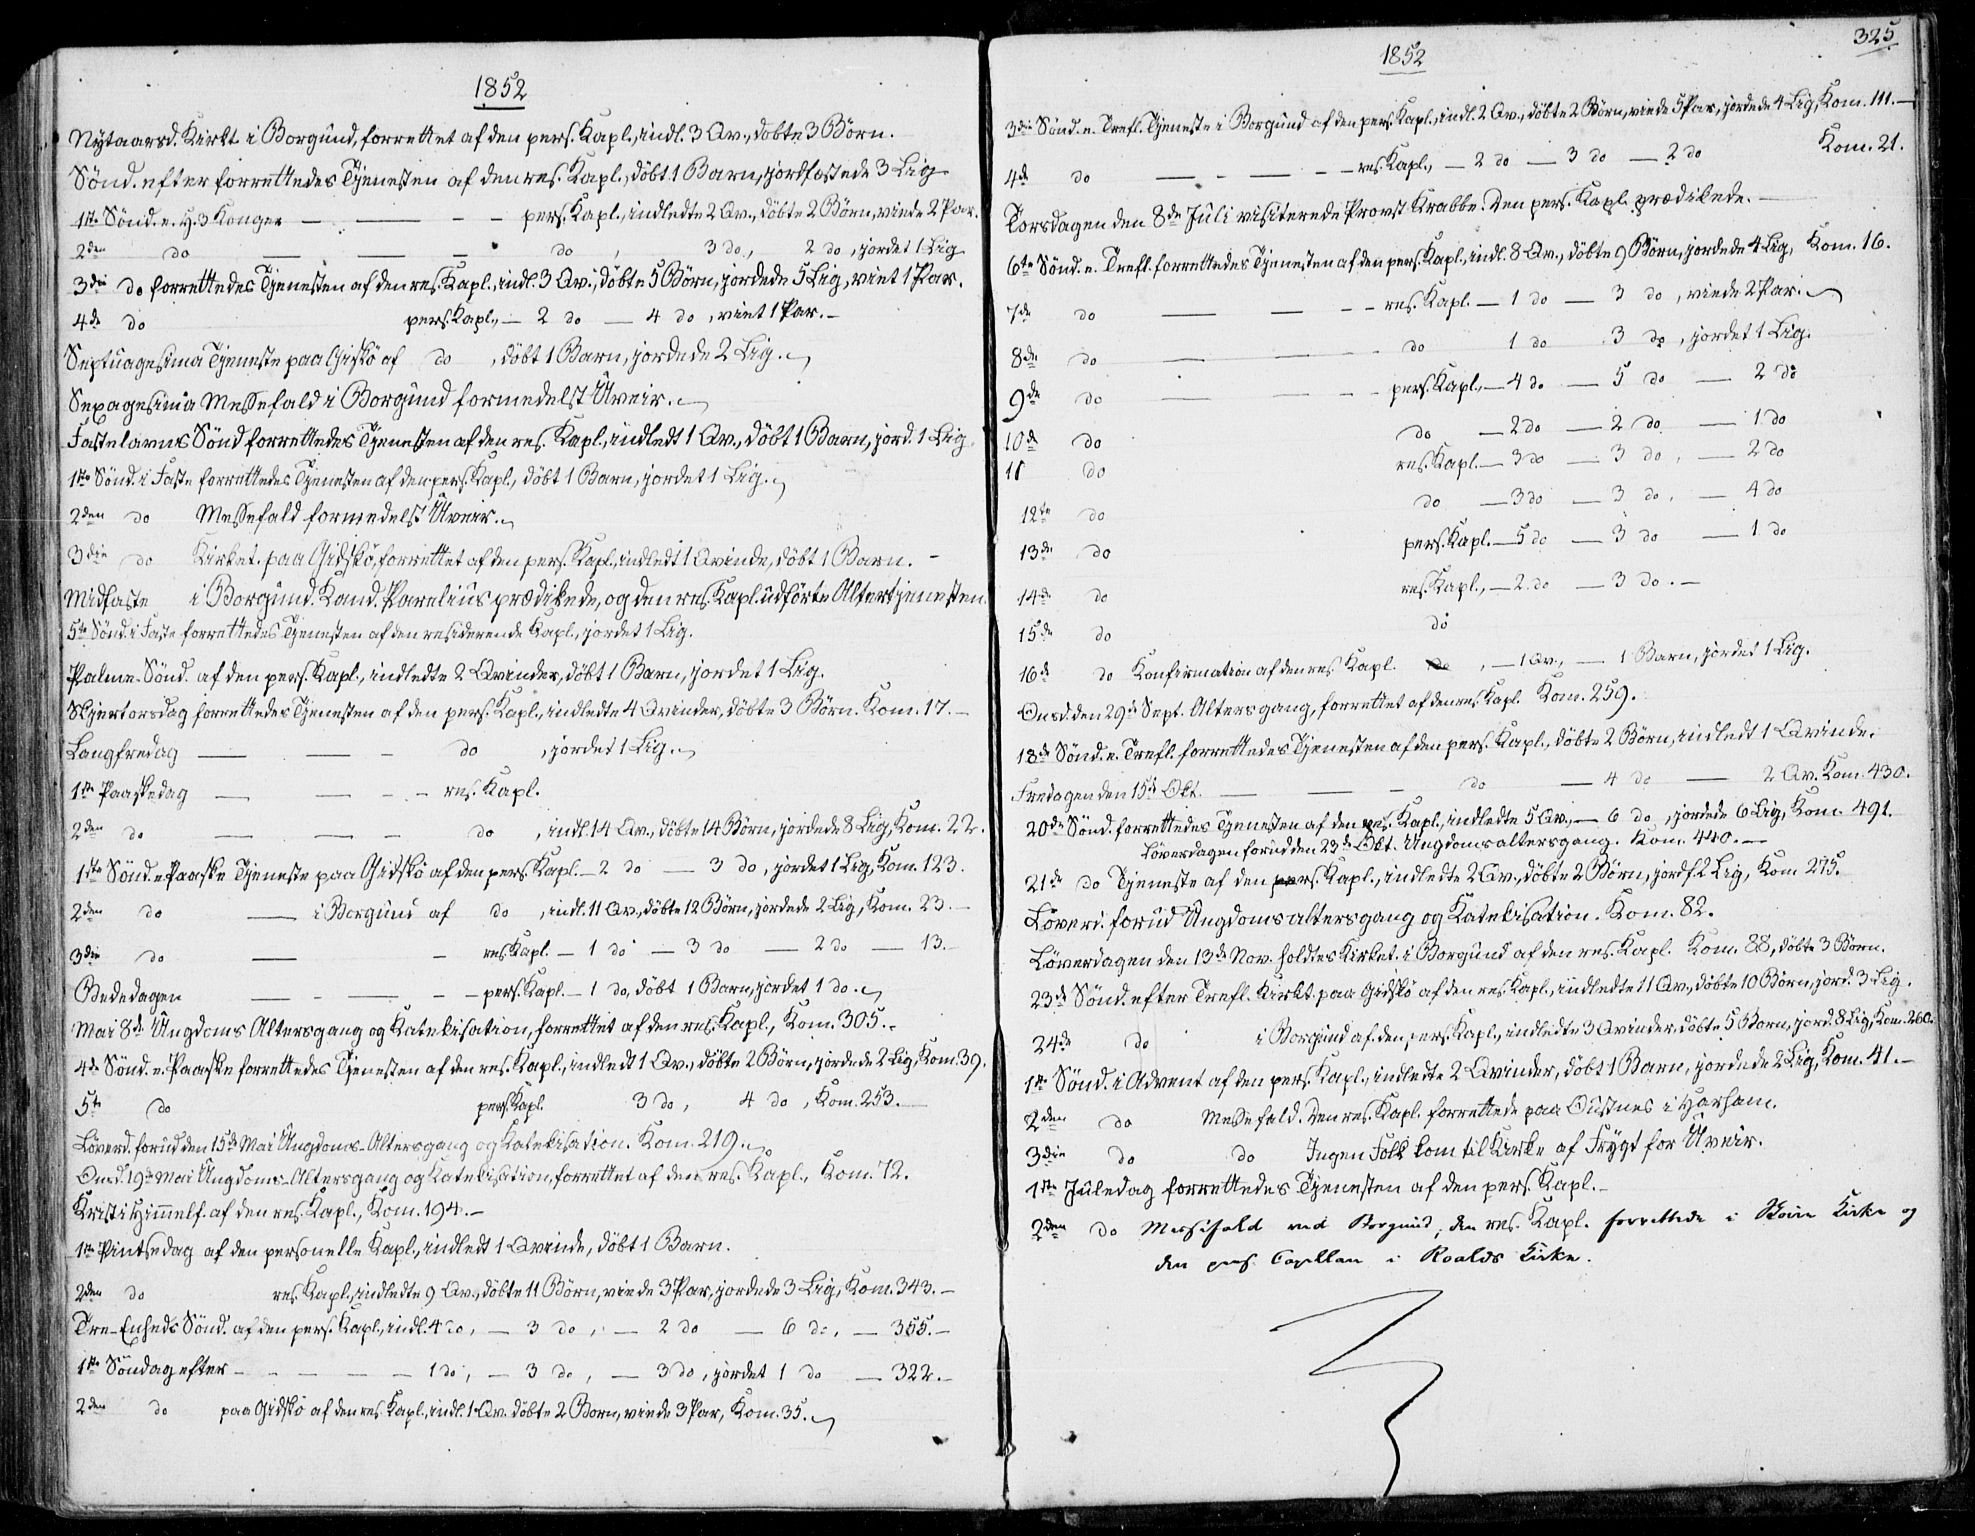 1852
Nytaarsd. Kirkt. i Borgund, forrettet af den pers. Kapl., indl. 3 Qv., döbte 3 Börn.
Sönd. efter forrettedes Tjenesten af den res. Kapl., döbt 1 Barn, jordfæstede 3 Lig
1ste Sönd. e. H. 3 Konger — — — pers. Kapl., indledte 2 Qv., döbte 2 Börn, viede 2 Par.
2den do — — — do , 3 do, 2 do, jordet 1 Lig
3die do forrettedes Tjenesten af den res. Kapl., indl. 3 Qv., döbte 5 Börn, jordede 5 Lig, viet 1 Par.
4de do pers. Kapl., — 2 do — 4 do, viet 1 Par. —
Septuagesima Tjeneste paa Giskö af do , döbt 1 Barn, jordede 2 Lig.
Sexagesima Messefald i Borgund formedelst Uveir.
Fastelavns Sönd forrettedes Tjenesten af den res. Kapl., indledt 1 Qv., döbt 1 Barn, jord. 1 Lig.
1ste Sönd. i Faste forrettedes Tjenesten af den pers. Kapl., döbt 1 Barn, jordet 1 Lig.
2den do Messefald formedelst Uveir.
3die do Kirket. paa Gidskö, forrettet af den pers. Kapl., indledt 1 Qvinde, döbt 1 Barn. —
Midfaste i Borgund. Kand. Parelius prædikede, og den res. Kapl. udförte Altertjenesten.
5te Sönd. i Faste forrettedes Tjenesten af den residerende Kapl., jordet 1 Lig.
Palme-Sönd. af den pers. Kapl., indledte 2 Qvinder, döbt 1 Barn, jordet 1 Lig.
Skjertorsdag forrettedes Tjenesten af den pers. Kapl., indledte 4 Qvinder, döbte 3 Börn. Kom. 17. —
Langfredag — — — do , jordet 1 Lig.
1ste Paaskedag — — — res. Kapl.
2den do — — — do , indl. 14 Qv., döbte 14 Börn, jordede 8 Lig, Kom. 22.
1ste Sönd. e. Paaske Tjeneste paa Gidskö af den pers. Kapl. — 2 do — 3 do, jordet 1 Lig, Kom. 123.
2den do — i Borgund af do , indl. 11 Qv., döbte 12 Börn, jordede 2 Lig, Kom. 23. —
3die do — — res. Kapl. — 1 do — 3 do — 2 do — 13. —
Bededagen — — — — pers. Kapl. — 1 do, döbt 1 Barn, jordet 1 do.
Mai 8de Ungdoms Altersgang og Katekisation, forrettet af den res. Kapl., Kom. 305. —
4de Sönd. e. Paaske forrettedes Tjenesten af den res. Kapl., indledt 1 Qv., döbte 2 Börn, jordede 2 Lig, Kom. 39.
5te do pers. Kapl. 3 do, 4 do, Kom. 253. —
Löverd. forud den 15de Mai Ungdoms-Altersgang og Katekisation. Kom. 219.
Onsd. 19de Mai Ungdoms-Altersgang og Katekisation, forrettet af den res. Kapl., Kom. 72.
Kristi Himmelf. af den res. Kapl., Kom. 194. —
1ste Pintsedag af den personelle Kapl., indledt 1 Qvinde, döbt 1 Barn.
2den do res. Kapl., indledte 9 Qv., döbte 11 Börn, viede 3 Par, jordede 3 Lig, Kom. 343. —
Tre-Enheds Sönd. af den pers. Kapl., indl. 4 do, — 3 do, — 2 do — 6 do, — 355. —
1ste Söndag efter — — — — 1 do, — 3 do, — 3 do, jordet 1 do — 322. —
2den do paa Gidskö af den res. Kapl., indl. 1 Qv. döbte 2 Börn, viede 3 Par, Kom. 35.
325
1852
3die Sönd. e. Trefl. Tjeneste i Borgund af den pers. Kapl., indl. 2 Qv., döbte 2 Börn, viede 5 Par, jordede 4 Lig, Kom. 111. —
4de do — — — — res. Kapl., — 2 do — 3 do — 2 do Kom. 21.
Torsdagen den 8de Juli visiterede Provst Krabbe. Den pers. Kapl. prædikede. —
6te Sönd. e. Trefl. forrettedes Tjenesten af den pers. Kapl., indl. 8 Qv., döbte 9 Börn, jordede 4 Lig, Kom. 16.
7de do — — — res. Kapl. — 1 do — 3 do, viede 2 Par.
8de do — — — do 1 do 3 do, jordet 1 Lig.
9de do — — — pers. Kapl., — 4 do — 5 do — 2 do
10de do do — 2 do — 2 do — 1 do
11 do res. Kapl. — 3 do — 3 do, — 2 do
12te do do — 3 do — 3 do, — 4 do
13de do pers. Kapl. — 5 do — 3 do — 1 do
14de do res. Kapl., — 2 do — 3 do. —
15de do do
16de do Konfirmation af den res. Kapl. , — 1 Qv., — 1 Barn, jordet 1 Lig.
Onsd. den 29de Sept. Altersgang, forrettet af den res. Kapl. Kom. 259.
18de Sönd. e. Trefl. forrettedes Tjenesten af den pers. Kapl., döbte 2 Börn, indledt 1 Qvinde.
Fredagen den 15de Okt. — — — do — 4 do — 2 Qv. Kom. 430.
20de Sönd. forrettedes Tjenesten af den res. Kapl., indledte 5 Qv., — 6 do, jordede 6 Lig, Kom. 491.
Löverdagen forud den 23de Okt. Ungdomsaltersgang. Kom. 440. —
21de do Tjeneste af den pers. Kapl., indledte 2 Qv., döbte 2 Börn, jordf. 2 Lig, Kom 275.
Löverd. forud Ungdomsaltersgang og Katekisation. Kom. 82.
Löverdagen den 13de Nov. holdtes Kirket. i Borgund af den res. Kapl. Kom. 88, döbte 3 Börn.
23de Sönd. efter Trefl. Kirkt. paa Gidskö af den res. Kapl., indledte 11 Qv., döbte 10 Börn, jord. 3 Lig.
24de do i Borgund af den pers. Kapl., indledte 3 Qvinder, döbte 5 Börn, jord. 8 Lig, Kom. 260.
1ste Sönd. i Advent af den pers. Kapl., indledte 2 Qvinder, döbt 1 Barn, jordede 2 Lig, Kom. 41. —
2den do Messefald. Den res. Kapl. forrettede paa Oustnes i Harham.
3die do do Ingen Folk kom til Kirke af Frygt for Uveir.
1ste Juledag forrettedes Tjenesten af den pers. Kapl. —
2den do Messefald ved Borgund, den res. Kapl. forrettede i Kirke og
den pers. Capellan i Roalds Kirke.